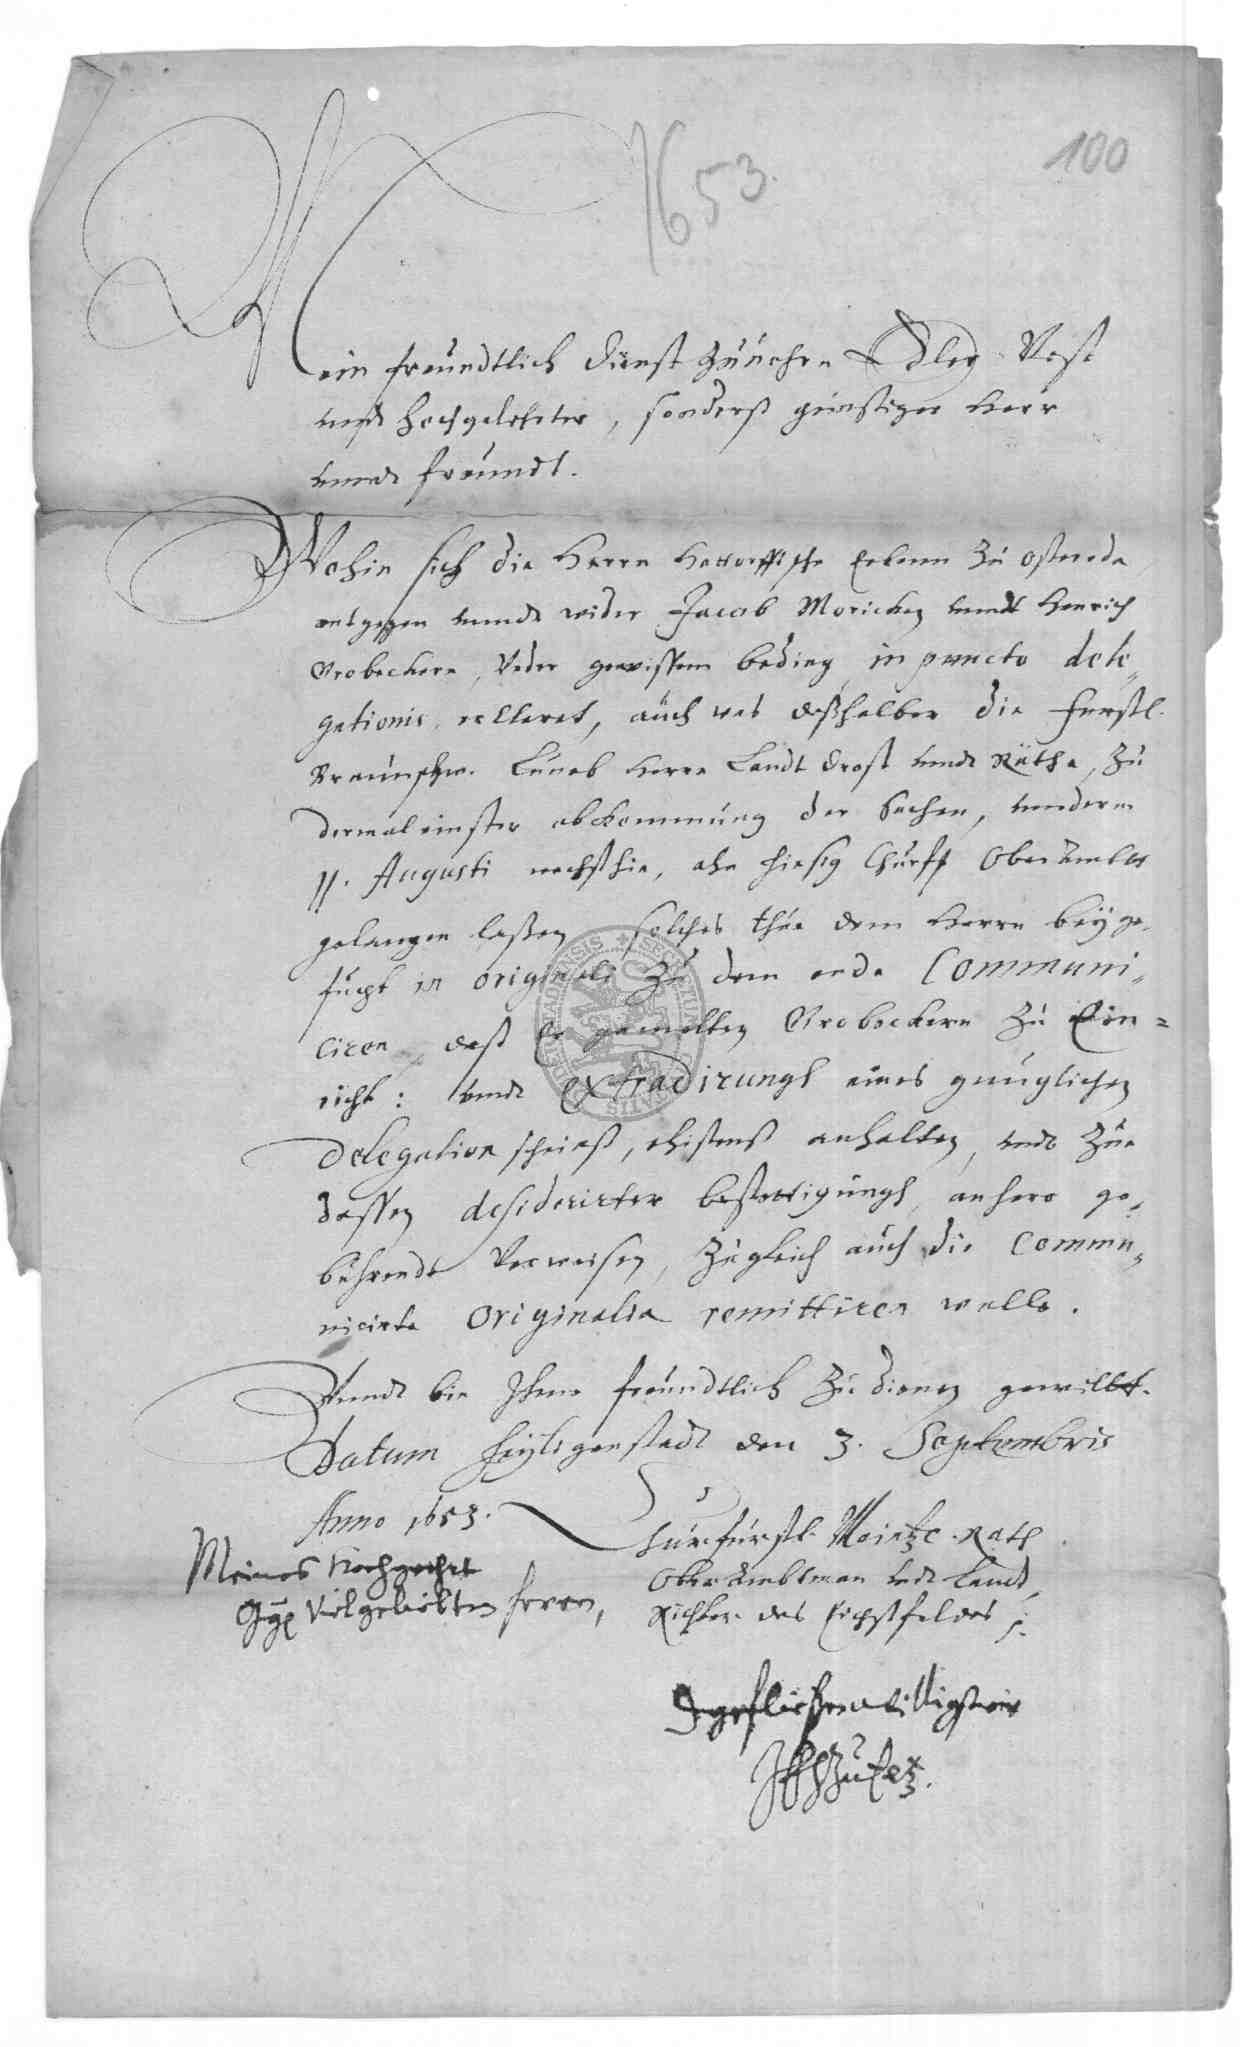 1653.
100
Mein freundtlich dienst zuuohrn Edler Vest
undt hochgelehrter, sonderß günstiger Herr
unndt freundt.
Wohin sich die Herrn Erben zu Osteroda
entgegen unndt wider Jacob Moricken unndt Henrich
Grobeckern, unter gewissem beding, in puncto dele,,
gationis erkleret, auch was deßhalber die Fürstl.
Braunschw. Luneb Herrn Landt Drost undt Räthe, zu
dermaleinster abkommung der Sachen, unnderm
11. Augusti nechsthin, ahn hiesig Churfl OberAmbt
gelangen laßen, solches thue dem Herrn beyge,,
fuegt in originali zu dem ende Communi,,
ciren, daß Er gemelten Grobeckern zu Ein=
richt: undt extradirungh eines gnuglichen
Delegation scheinß, ehistenß anhalten, undt zue
dessen desiderirter bestettigungh, anhero ge,,
buhrendt Verweisen, zugleich auch die Commu,,
nicirte Originalia remittiren wolle.
Unndt bin Ihme freundtlich zu dienen gewillt.
Datum Heyligenstadt den 3. Septembris
Anno 1653.
Churfürstl. Maintz. Rath
OberAmbtman undt Landt
Richter des Eichsfeldes
Meines hochgeehrt
Vielgeliebten herrn,
gefließenwilligster